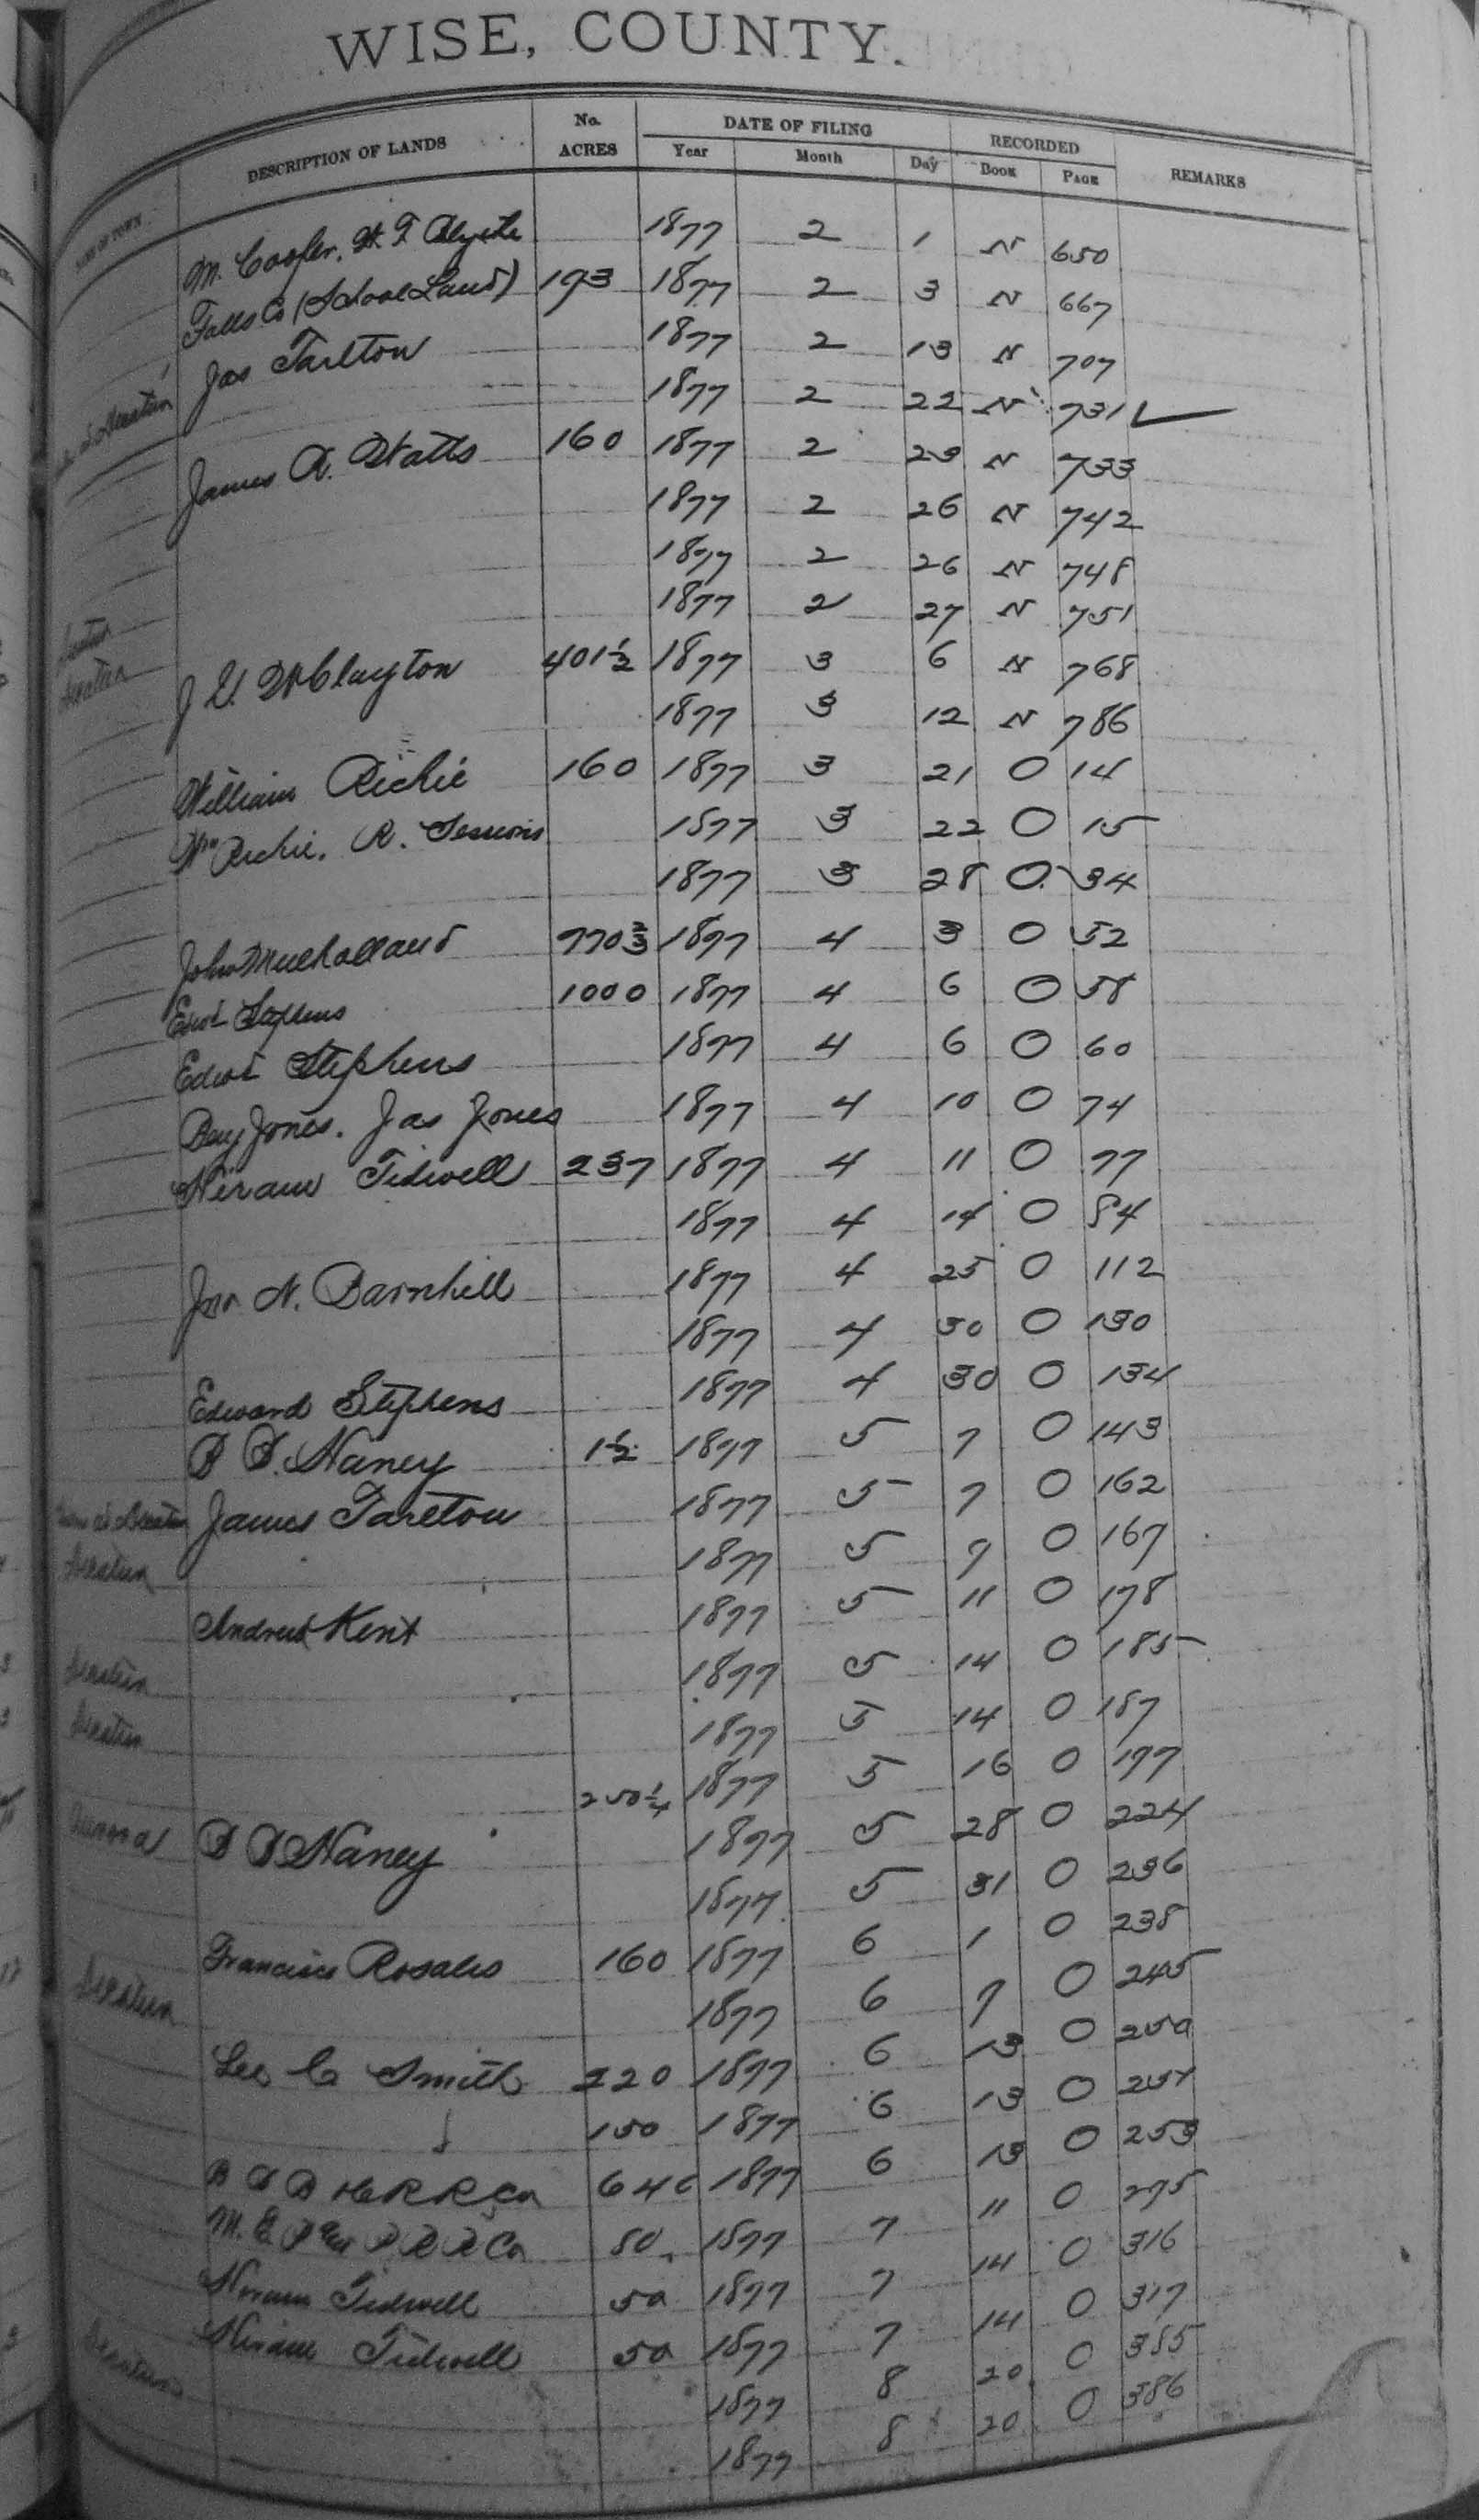 WISE, COUNTY.
DESCRIPTION OF LANDS No. ACRES DATE OF FILING Year Month Day RECORDED Book Page REMARKS
M. Cooper, W. T. 1877 2 1 N 650
Falls Co (School Land) 193 1877 2 3 N 667
Jas Tarlton 1877 2 13 N 707
1877 2 22 N 731 ✓
James A. Watts 160 1877 2 23 N 733
1877 2 26 N 742
1877 2 26 N 748
1877 2 27 N 751
J. G. McClayton 401½ 1877 3 6 N 768
1877 3 12 N 786
William Richie 160 1877 3 21 O 14
Wm Richie, R. Sessions 1877 3 22 O 15
1877 3 28 O 34
John Mulholland 770⅔ 1877 4 3 O 52
Edwd Stephens 1000 1877 4 6 O 58
Edwd Stephens 1877 4 6 O 60
Benj Jones. Jas Jones 1877 4 10 O 74
Hiram Tidwell 237 1877 4 11 O 77
1877 4 14 O 84
Jno N. Barnhill 1877 4 25 O 112
1877 4 30 O 130
Edward Stephens 1877 4 30 O 134
B D. Haney 1½ 1877 5 7 O 143
James Tarlton 1877 5 7 O 162
Decatur 1877 5 9 O 167
Andrew Kent 1877 5 11 O 178
Decatur 1877 5 14 O 185
Decatur 1877 5 14 O 187
250¼ 1877 5 16 O 197
Aurora B D Haney 1877 5 28 O 224
1877 5 31 O 236
Francisco Rosales 160 1877 6 1 O 238
Decatur 1877 6 7 O 245
Lee C Smith 220 1877 6 13 O 250
150 1877 6 13 O 251
B B B & C R R Co 640 1877 6 13 O 253
M. E. P & P R R Co 80 1877 7 11 O 295
Hiram Tidwell 50 1877 7 14 O 316
Hiram Tidwell 50 1877 7 14 O 317
Decatur 1877 8 20 O 385
1877 8 20 O 386